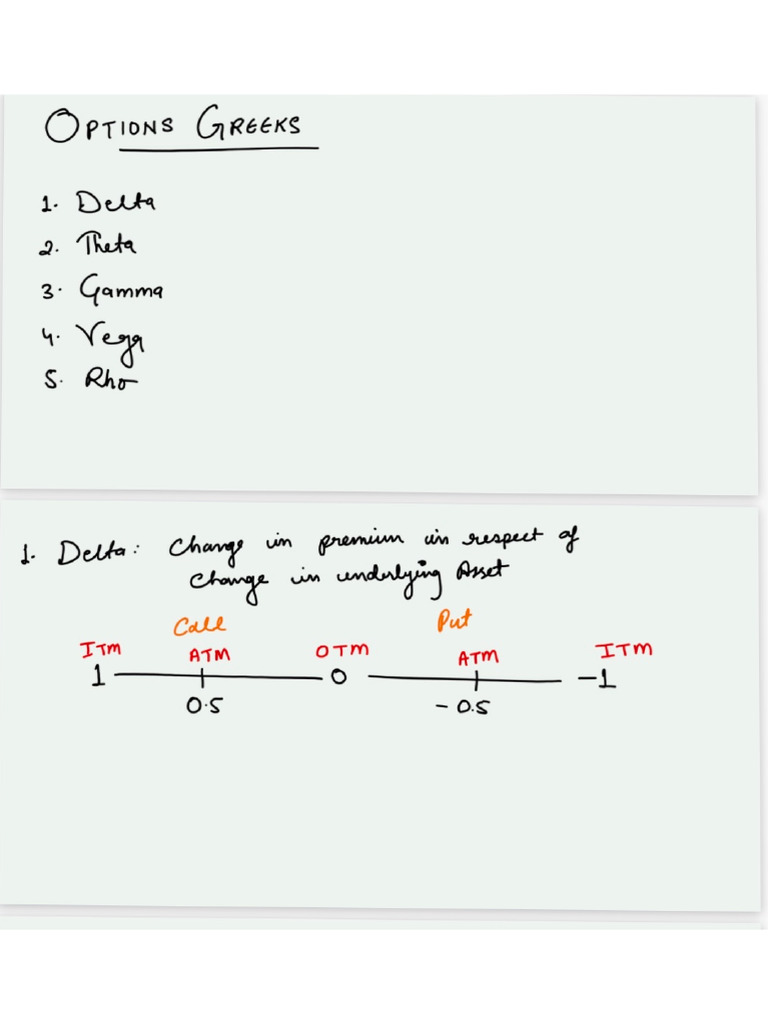 OPTIONS GREEKS
1. Delta
2. Theta
3. Gamma
4. Vega
5. Rho
1. Delta: Change in premium in respect of
change in underlying Asset
Call Put
ITM ATM OTM ATM ITM
1 0 -1
0.5 - 0.5